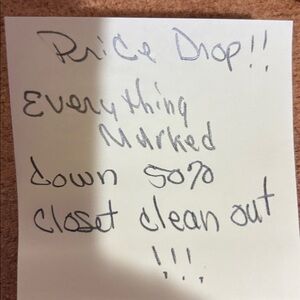 Price Drop!!
Everything
Marked
down 50%
closet clean out
!!!